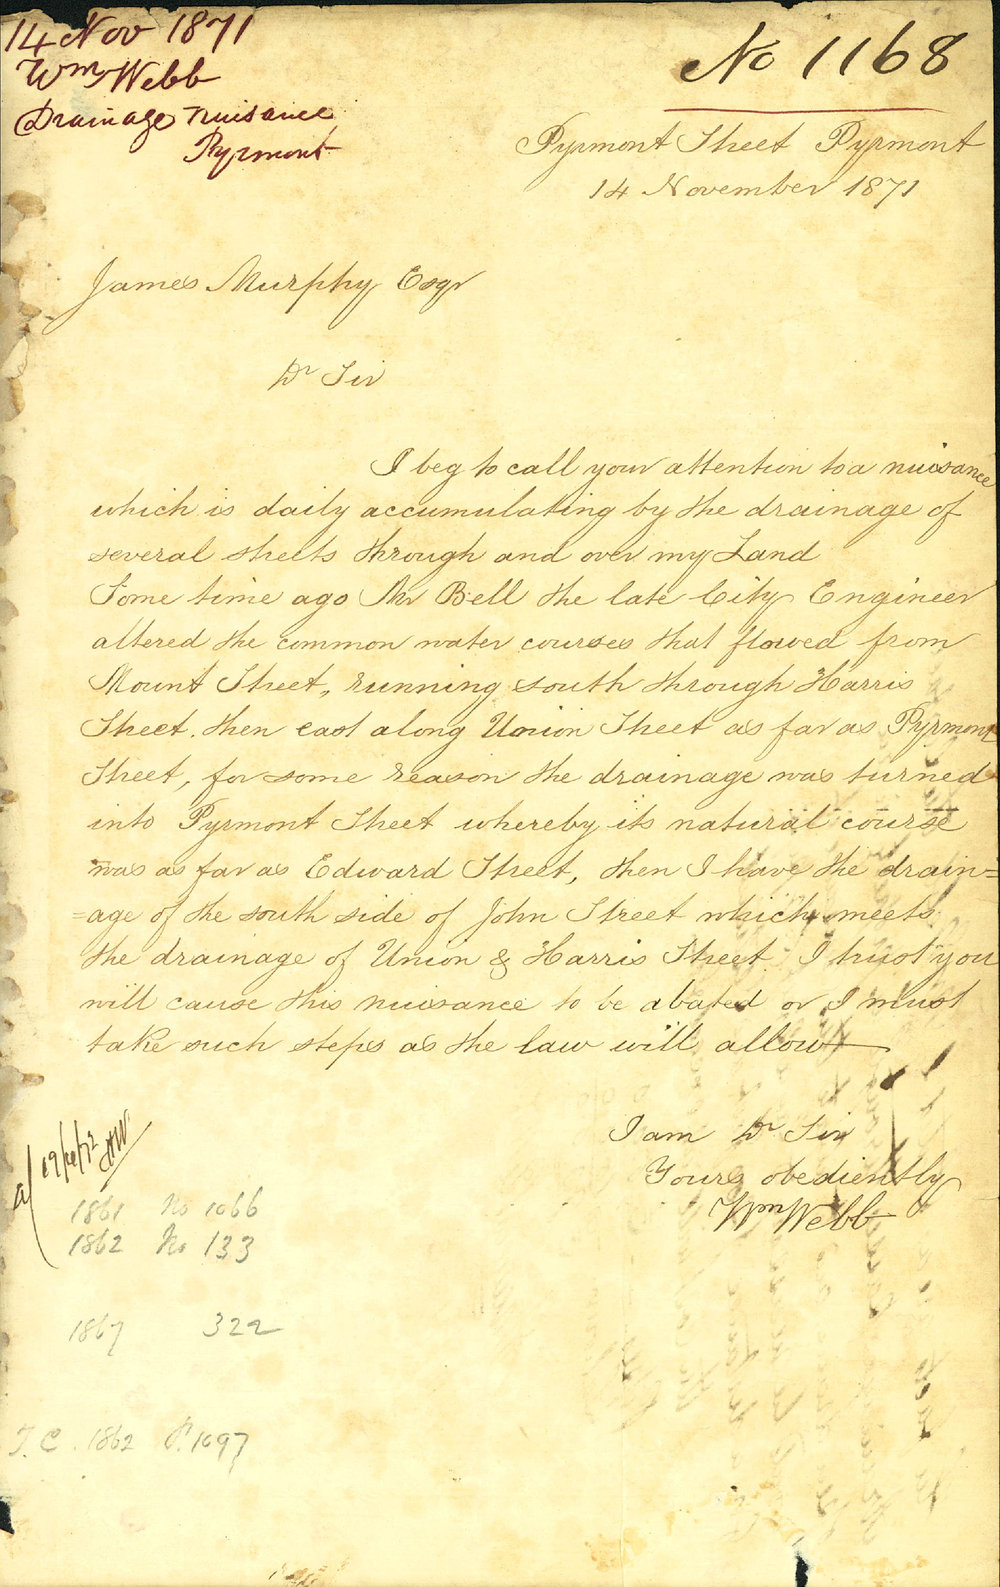 14 Nov 1871
Wm Webb
Drainage nuisance
Pyrmont
No 1168
Pyrmont Street Pyrmont
14 November 1871
James Murphy Esqr
Dr Sir
I beg to call your attention to a nuisance
which is daily accumulating by the drainage of
several streets through and over my Land
Some time ago Mr Bell the late City Engineer
altered the common water courses that flowed from
Mount Street, running south through Harris
Street. then east along Union Street as far as Pyrmont
Street, for some reason the drainage was turned
into Pyrmont Street whereby its natural course
was as far as Edward Street, then I have the drain=
=age of the south side of John Street which meets
the drainage of Union & Harris Street. I trust you
will cause this nuisance to be abated or I must
take such steps as the law will allow
I am Dr Sir
Yours obediently
Wm Webb
1861 No 1066
1862 No 133
1867 322
T.C. 1862 P. 1097